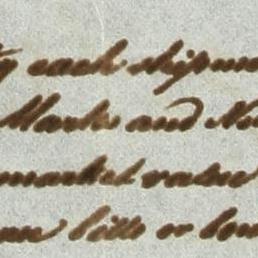 each shipme
Marks and Nu
market value
bills or